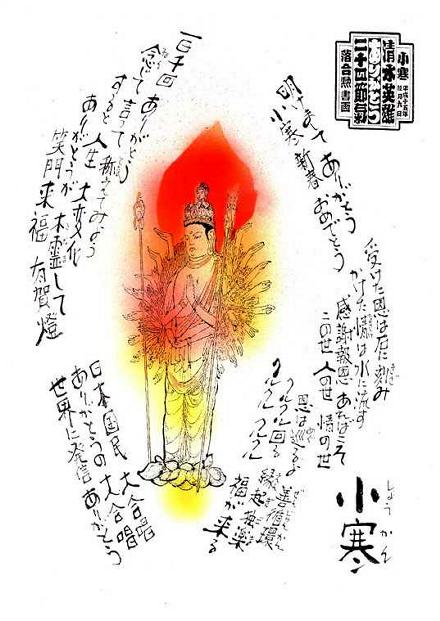 小寒 平成十五年
清水英雄
二十四節気
落合勲書画
明けまして ありがとう
小寒 新春 おめでとう
受けた恩は石に刻み
かけた情は水に流す
感謝報恩 あればこそ
この世 人の世 情の世
クルクル回る クルクル
恩は巡るよ 善循環
縁起 妙薬
福が来る
小寒
しょうかん
一日千回 ありがとう
念じて 言って 称えてみよう
すると 人生 大変化
ありがとうが 木霊して
笑門来福 有賀燈
日本国民 大合唱
ありがとうの 大合唱
世界に発信 ありがとう